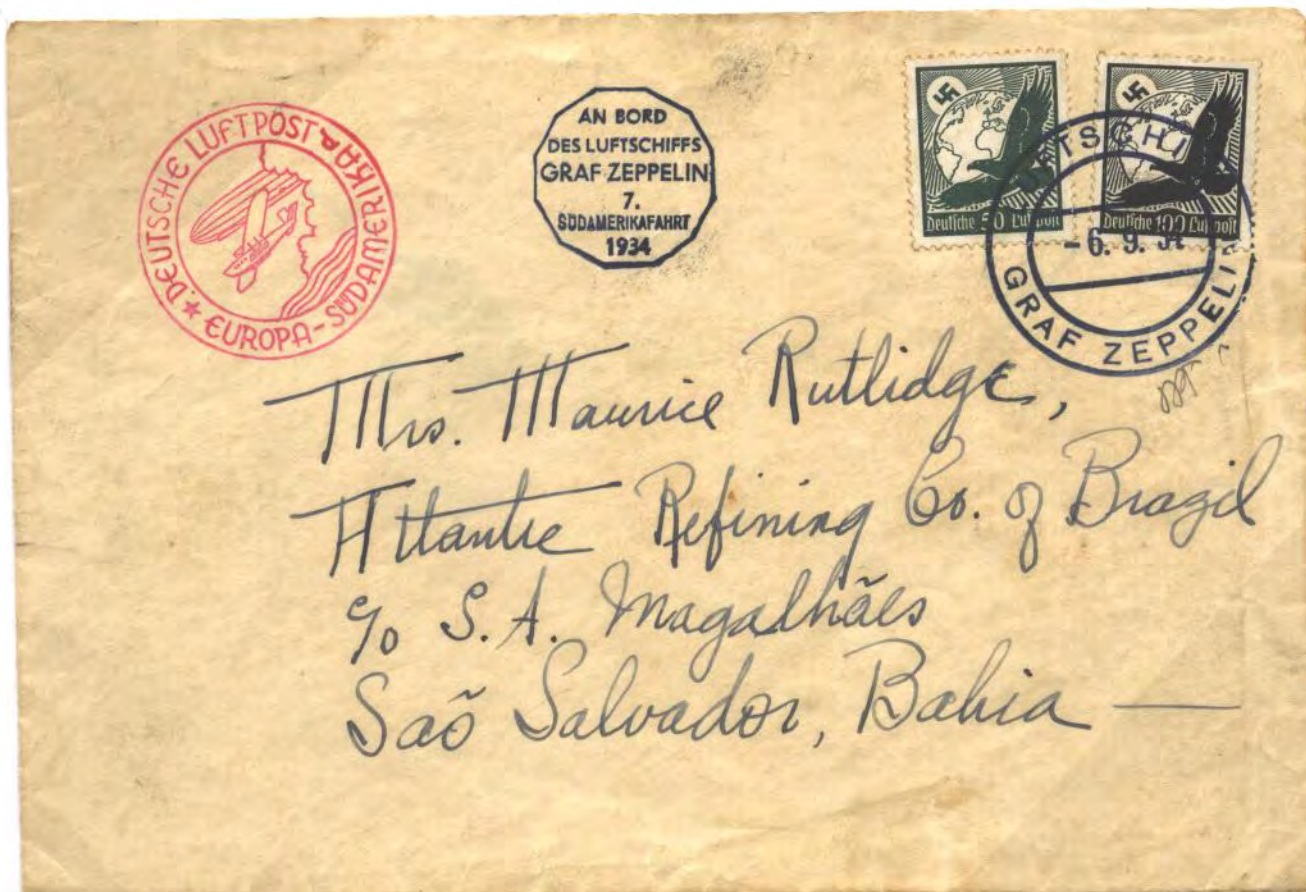 DEUTSCHE LUFTPOST
EUROPA-SÜDAMERIKA
AN BORD
DES LUFTSCHIFFS
GRAF ZEPPELIN
7.
SÜDAMERIKAFAHRT
1934
Deutsche 50 Luftpost
Deutsche 100 Luftpost
-6. 9. 34
GRAF ZEPPELIN
Mrs. Maurice Rutlidge,
Atlantic Refining Co. of Brazil
c/o S.A. Magalhães
Saõ Salvador, Bahia —